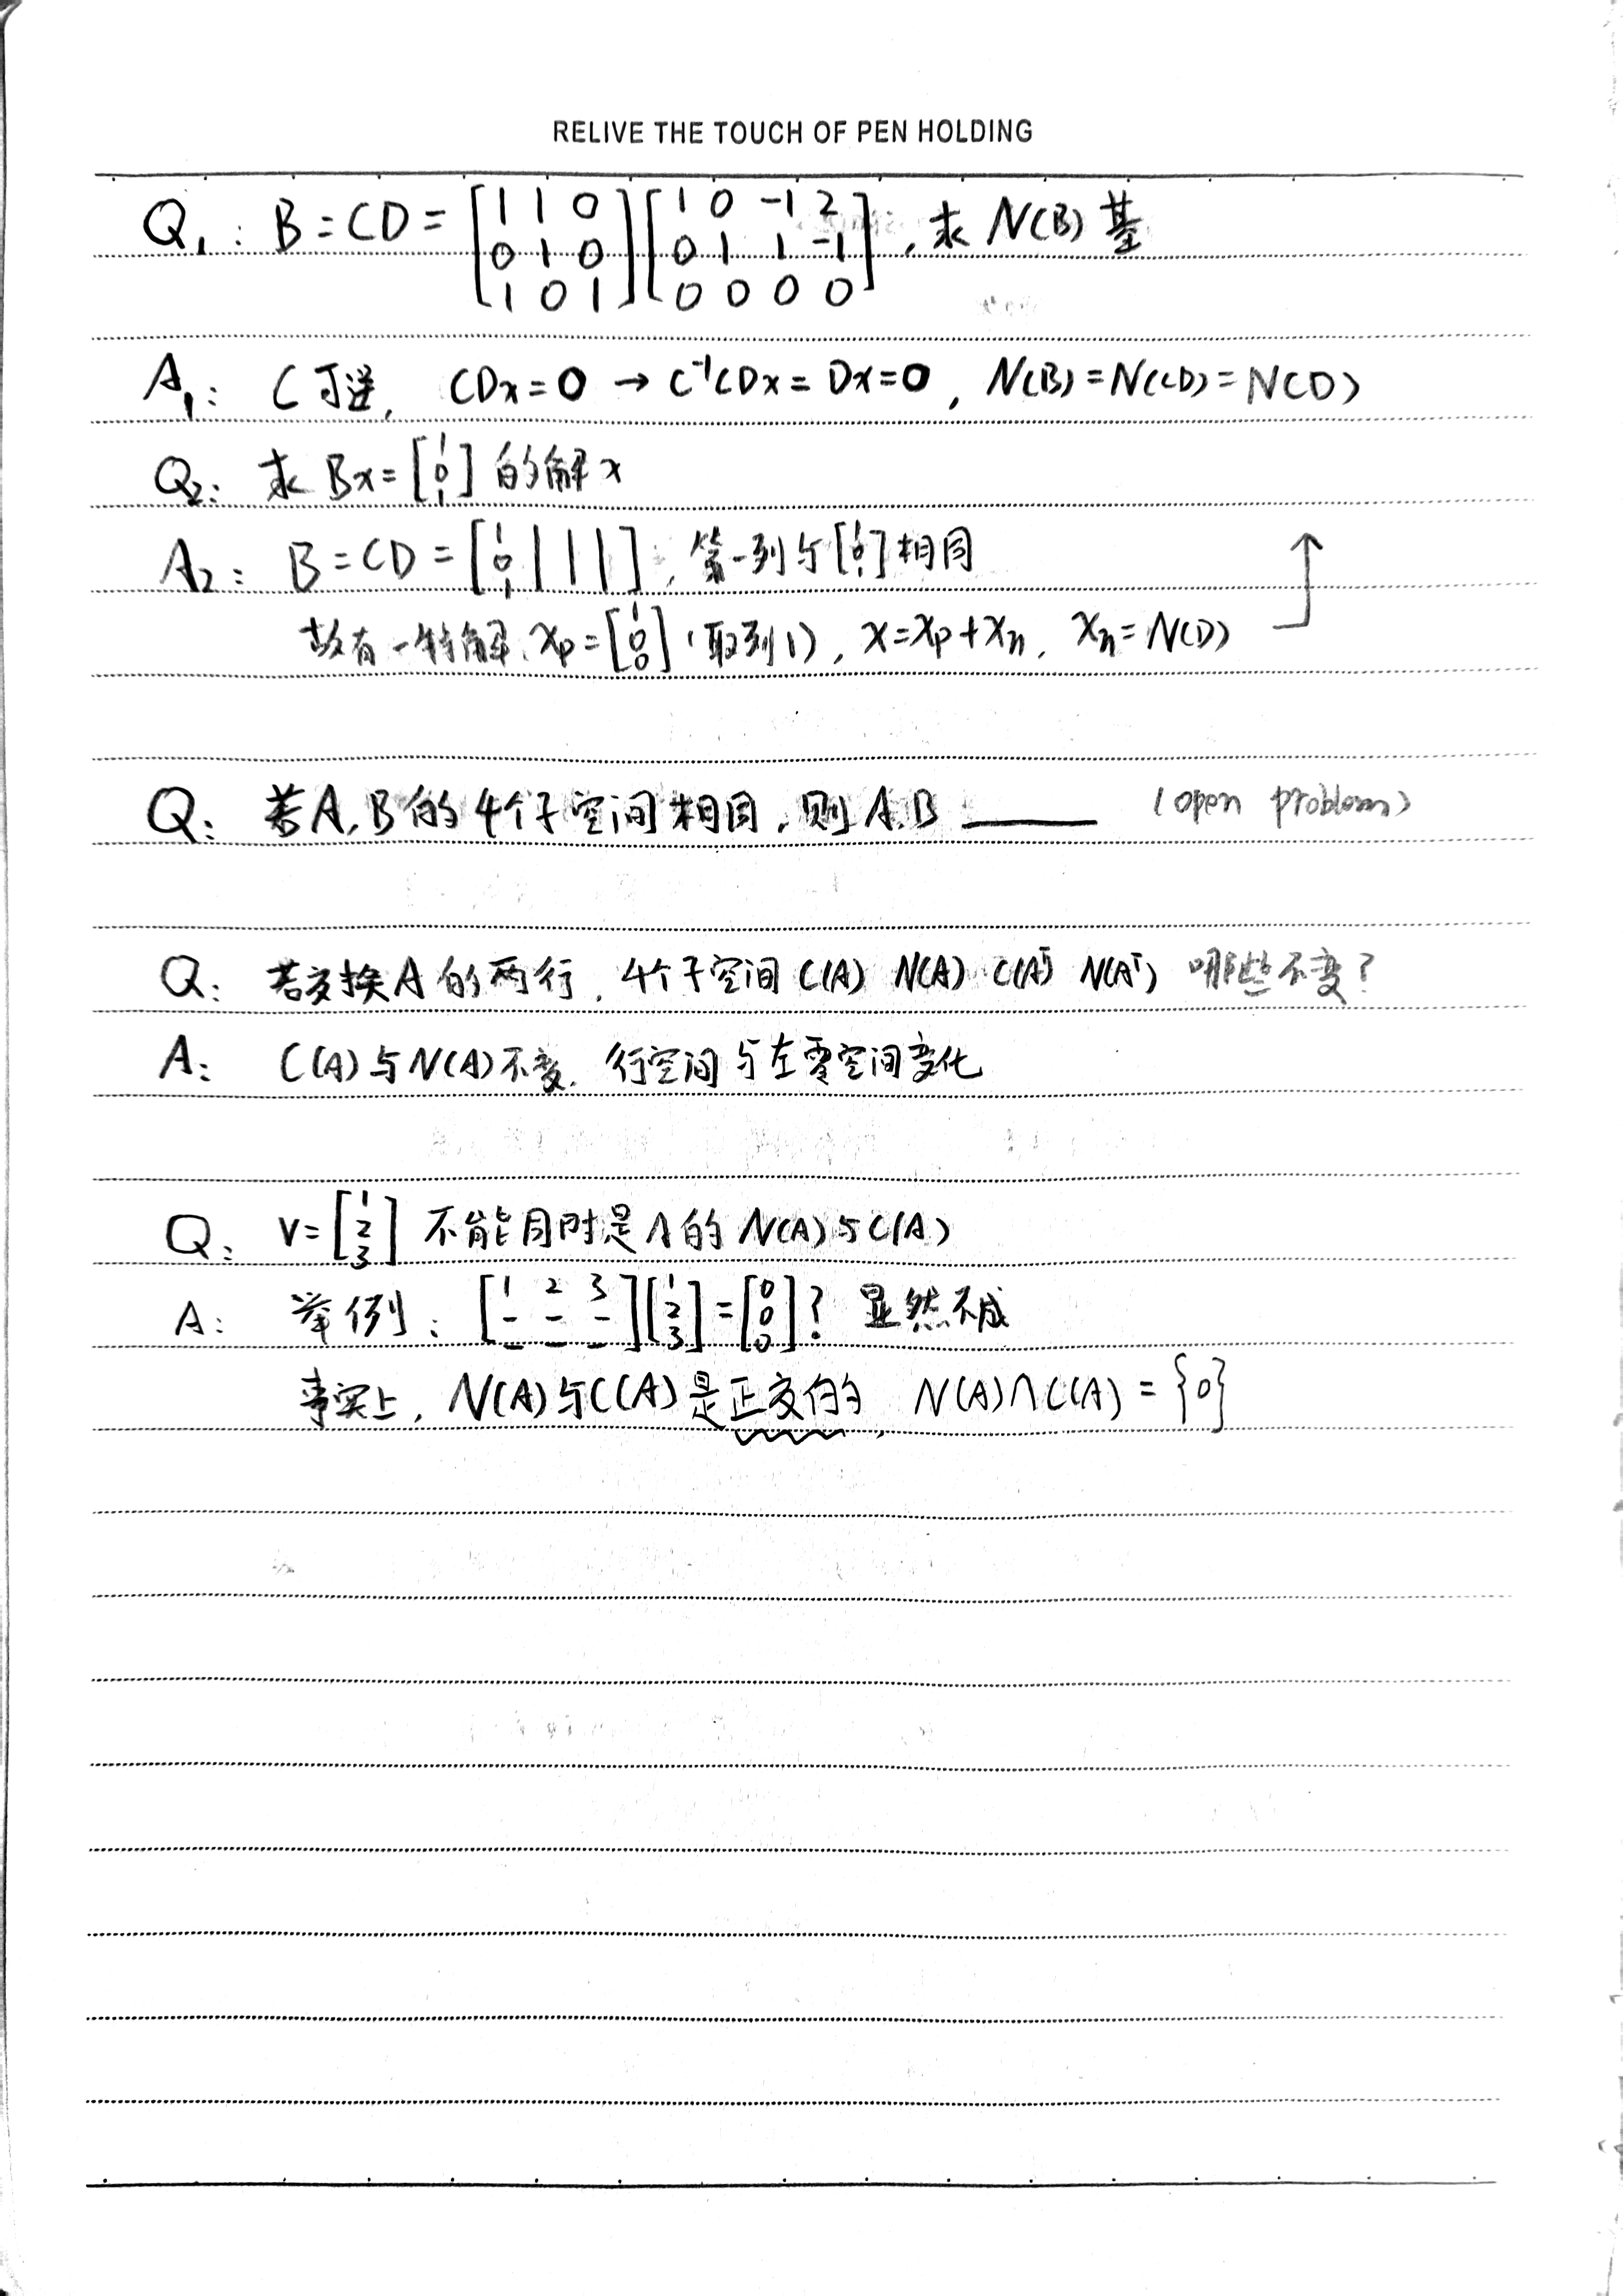 RELIVE THE TOUCH OF PEN HOLDING
Q₁: B=CD=[1 1 0; 0 1 0; 1 0 1][1 0 -1 2; 0 1 1 -1; 0 0 0 0], 求 N(B) 基
A₁: C可逆, CDx=0 → C⁻¹CDx=Dx=0, N(B)=N(CD)=N(D)
Q₂: 求 Bx=[1 0 1] 的解 x
A₂: B=CD=[1 0 1 | | | ], 第一列与[1 0 1]相同
故有一特解 xₚ=[1 0 0] (取列1), x=xₚ+xₙ, xₙ=N(D) ↑
Q: 若A,B的4个子空间相同, 则A,B ____ (open problem)
Q: 若交换A的两行, 4个子空间 C(A) N(A) C(Aᵀ) N(Aᵀ) 哪些不变?
A: C(A)与N(A)不变, 行空间与左零空间变化
Q: v=[1 2 3] 不能同时是A的N(A)与C(A)
A: 举例: [1 2 3; - - -; - - -][1 2 3]=[0 0 0]? 显然不成
事实上, N(A)与C(A)是正交的, N(A)∩C(A)={0}